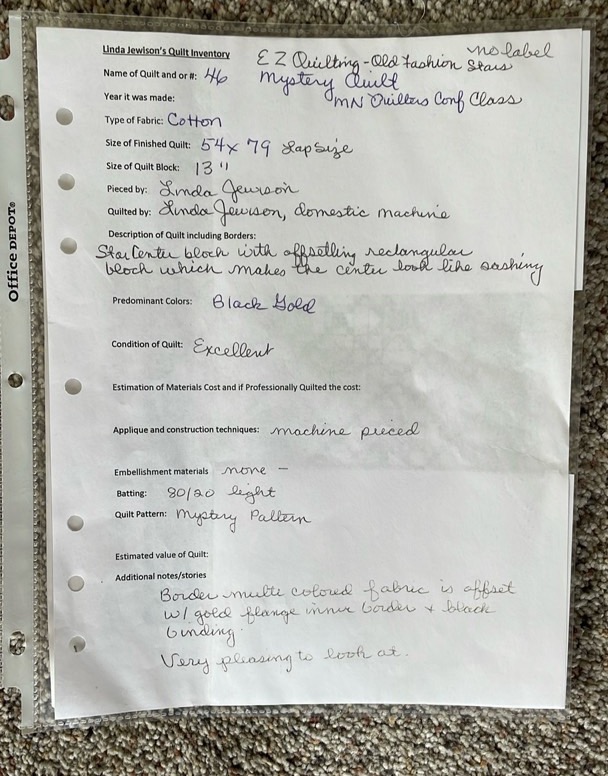 Linda Jewison's Quilt Inventory
no label
EZ Quilting - Old Fashion Stars
Name of Quilt and or #: 46 Mystery Quilt
MN Quilters Conf Class
Year it was made:
Type of Fabric: Cotton
Size of Finished Quilt: 54 x 79 Lap Size
Size of Quilt Block: 13"
Pieced by: Linda Jewison
Quilted by: Linda Jewison, domestic machine
Description of Quilt including Borders:
Star Center block with offsetting rectangular
block which makes the center look like sashing
Predominant Colors: Black Gold
Condition of Quilt: Excellent
Estimation of Materials Cost and if Professionally Quilted the cost:
Applique and construction techniques: machine pieced
Embellishment materials none -
Batting: 80/20 light
Quilt Pattern: Mystery Pattern
Estimated value of Quilt:
Additional notes/stories
Border multi colored fabric is offset
w/ gold flange inner border & black
binding.
Very pleasing to look at.
Office DEPOT®